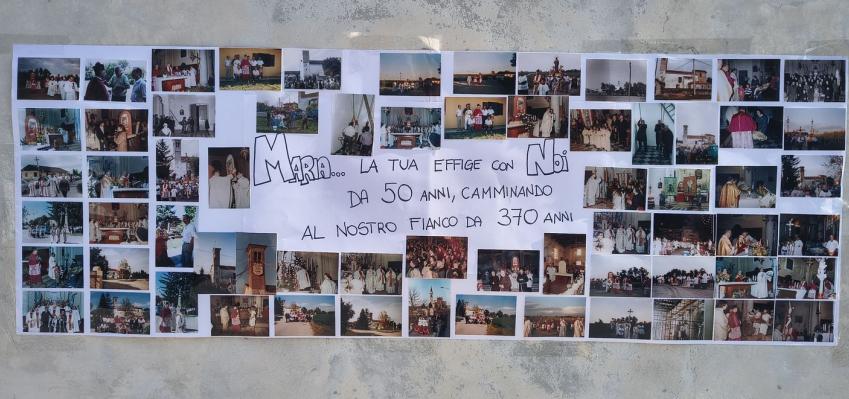 MARIA... LA TUA EFFIGE CON NOI
DA 50 ANNI, CAMMINANDO
AL NOSTRO FIANCO DA 370 ANNI